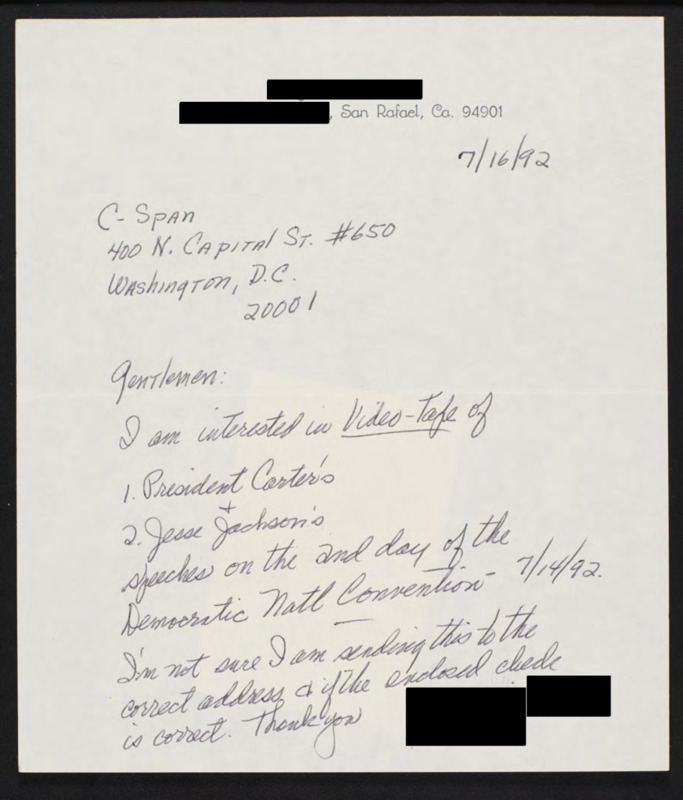 , San Rafael, Ca. 94901
7/16/92
C-Span
400 N. Capital St. #650
Washington, D.C.
20001
Gentlemen:
I am interested in Video-Tape of
1. President Carter's
+
2. Jesse Jackson's
speeches on the 2nd day of the
Democratic Natl Convention - 7/14/92.
I'm not sure I am sending this to the
correct address & if the enclosed check
is correct. Thank you